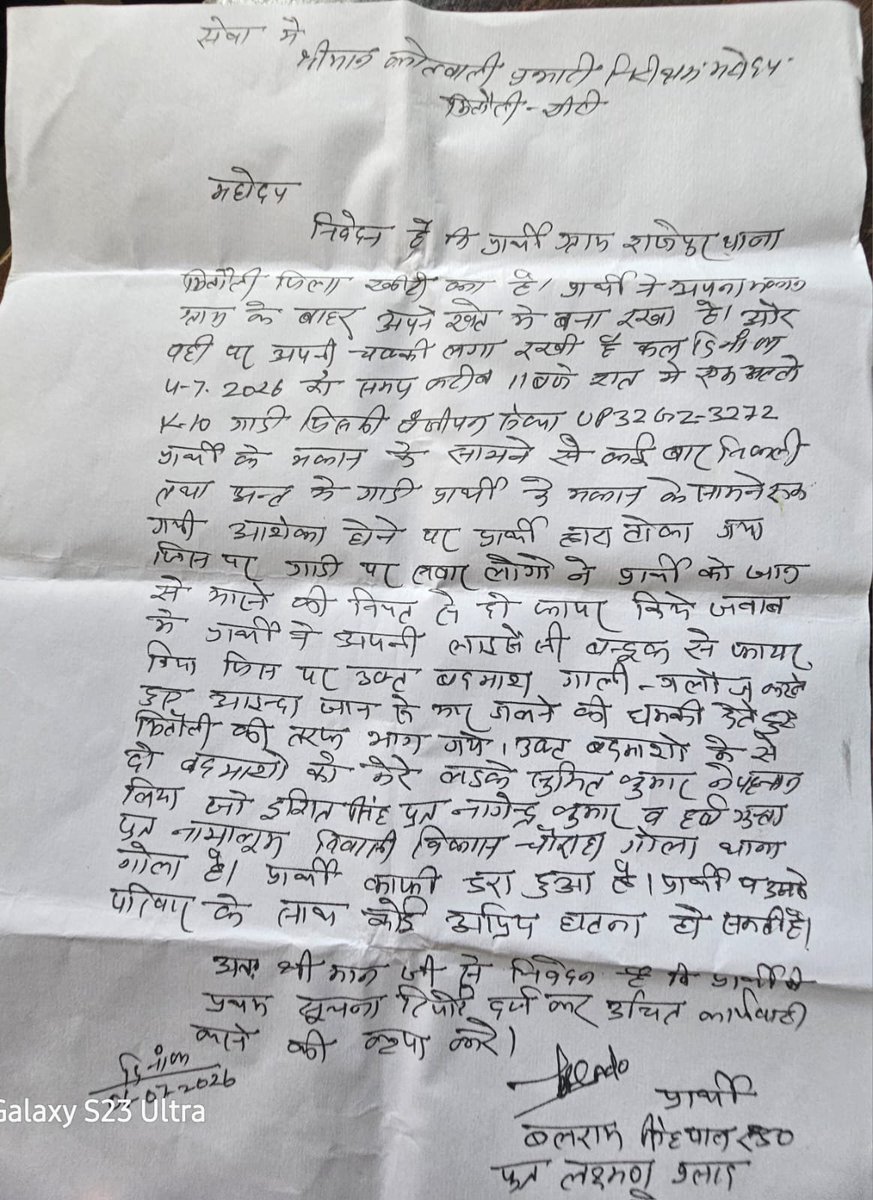 सेवा मे
श्रीमान कोतवाली प्रभारी निरीक्षक महोदय
मितौली-खीरी
महोदय
निवेदन है कि प्रार्थी ग्राम राजेपुर थाना
मितौली जिला खीरी का है। प्रार्थी ने अपना मकान
ग्राम के बाहर अपने खेत मे बना रखा है। और
वही पर अपनी चक्की लगा रखी है कल दिनांक
4-7-2026 को समय करीब 11 बजे रात मे एक अल्टो
K-10 गाडी जिसकी UP32GZ-3272
प्रार्थी के मकान के सामने से कई बार निकली
तथा अन्त मे गाडी प्रार्थी के मकान के सामने रुक
गयी आशंका होने पर प्रार्थी द्वारा टोका गया
जिस पर गाडी पर सवार लोगो ने प्रार्थी को जान
से मारने की नियत से दो फायर किये जवाब
मे प्रार्थी ने अपनी लाइसेंसी बन्दूक से फायर
किया जिस पर उक्त बदमाश गाली-गलौज करते
हुए आइन्दा जान से मार डालने की धमकी देते हुए
मितौली की तरफ भाग गये। उक्त बदमाशो मे से
दो बदमाशो को मेरे लडके सुमित कुमार ने पहचान
लिया जो सिंह पुत्र नागेन्द्र कुमार व हर्ष गुप्ता
पुत्र नामालूम निवासी विकास चौराहा गोला थाना
गोला है। प्रार्थी काफी डरा हुआ है। प्रार्थी व उसके
परिवार के साथ कोई अप्रिय घटना हो सकती है।
अतः श्रीमान जी से निवेदन है कि प्रार्थी की
प्रथम सूचना रिपोर्ट दर्ज कर उचित कार्यवाही
करने की कृपा करे।
दिनांक
-07-2026
प्रार्थी
बलराम सिंह पाल
पुत्र लक्ष्मण प्रसाद
Galaxy S23 Ultra